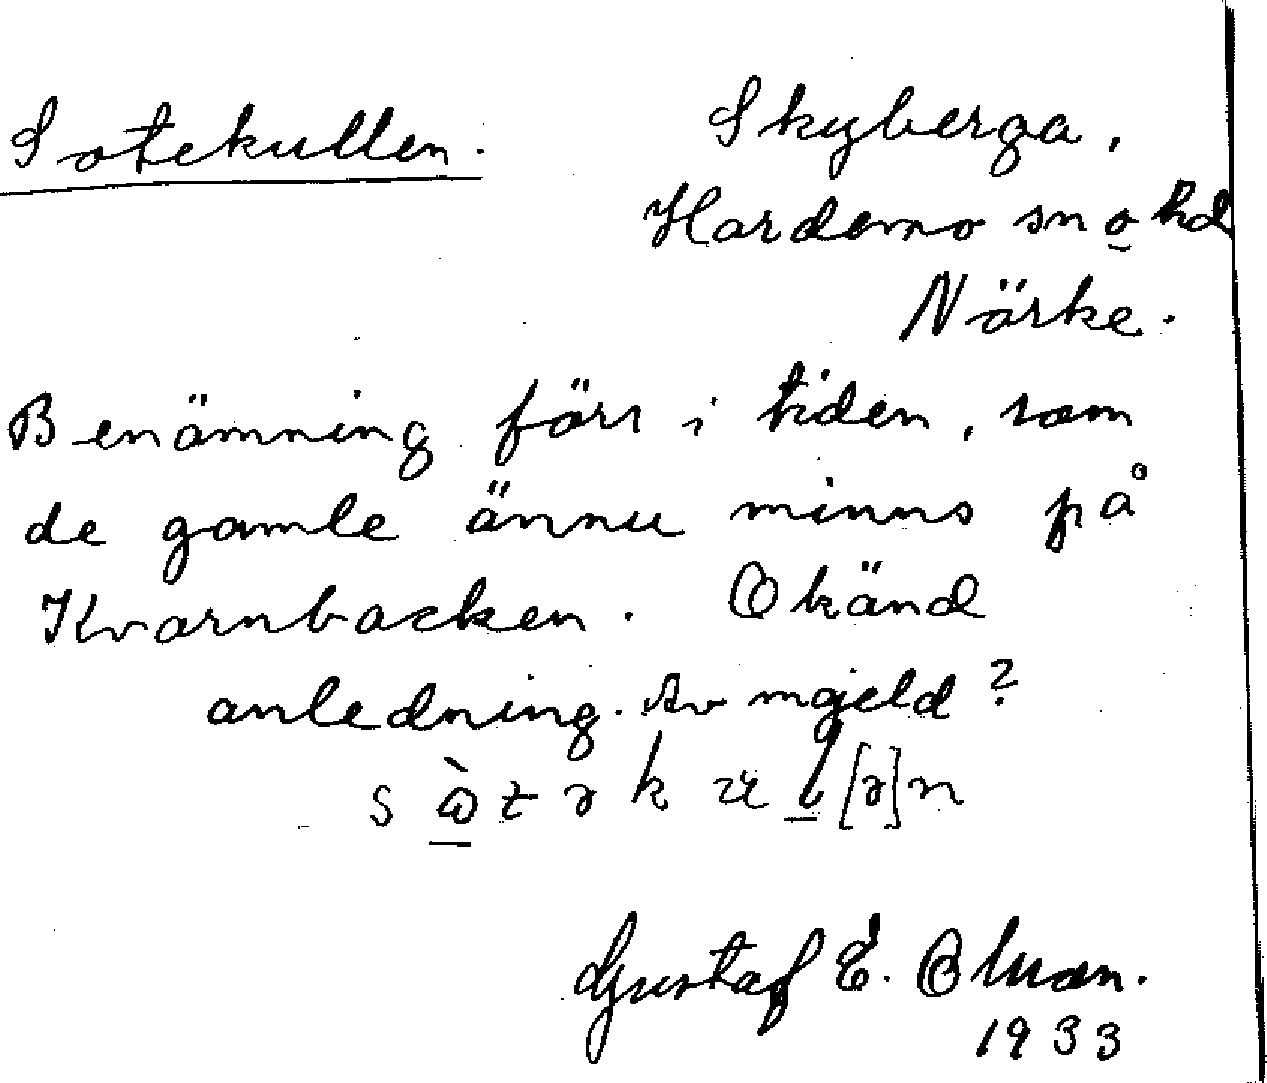 Sotekullen. Skyberga,
Hardemo sn o hd
Närke.
Benämning förr i tiden, som
de gamle ännu minns på
Kvarnbacken. Okänd
anledning. Av mjeld?
Gustaf E. Olsson.
1933